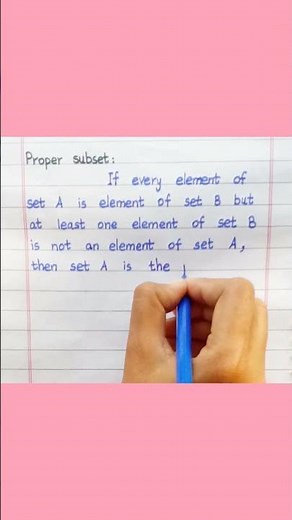 Proper subset:
If every element of
set A is element of set B but
at least one element of set B
is not an element of set A,
then set A is the